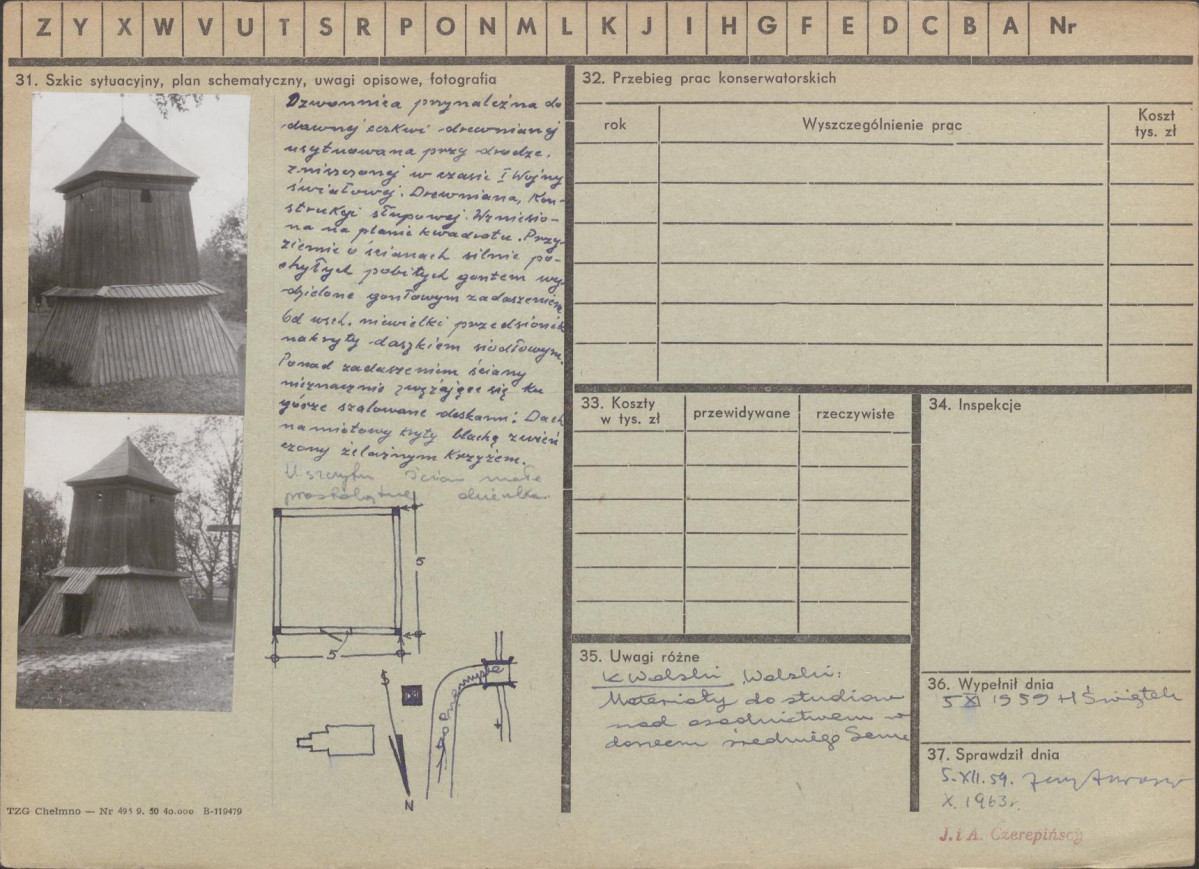 Z Y X W V U T S R P O N M L K J I H G F E D C B A Nr
31. Szkic sytuacyjny, plan schematyczny, uwagi opisowe, fotografia
Dzwonnica przynależna do
dawnej cerkwi drewnianej
usytuowana przy drodze,
zniszczonej w czasie I Wojny
światowej. Drewniana, kon-
strukcji słupowej. Wzniesio-
na na planie kwadratu. Przy-
ziemie o ścianach silnie po-
chyłych pobitych gontem wy-
dzielone gontowym zadaszeniem
Od wsch. niewielki przedsionek
nakryty daszkiem siodłowym.
Ponad zadaszeniem ściany
nieznacznie zwężające się ku
górze szalowane deskami. Dach
namiotowy kryty blachą zwień
czony żelaznym krzyżem.
U szczytu ścian małe
prostokątne okienka.
5
5
S
do Przemyśla
N
TZG Chełmno — Nr 495 9. 50 40.000 B-119479
32. Przebieg prac konserwatorskich
rok
Wyszczególnienie prac
Koszt
tys. zł
33. Koszty
w tys. zł
przewidywane
rzeczywiste
34. Inspekcje
35. Uwagi różne
K Wolski Wolski:
Materiały do studiów
nad osadnictwem w
dorzeczu średniego Sanu
36. Wypełnił dnia
5 XI 1959 H Świątek
37. Sprawdził dnia
5.XII.59. Jerzy
X. 1963r.
J. i A. Czerepińscy